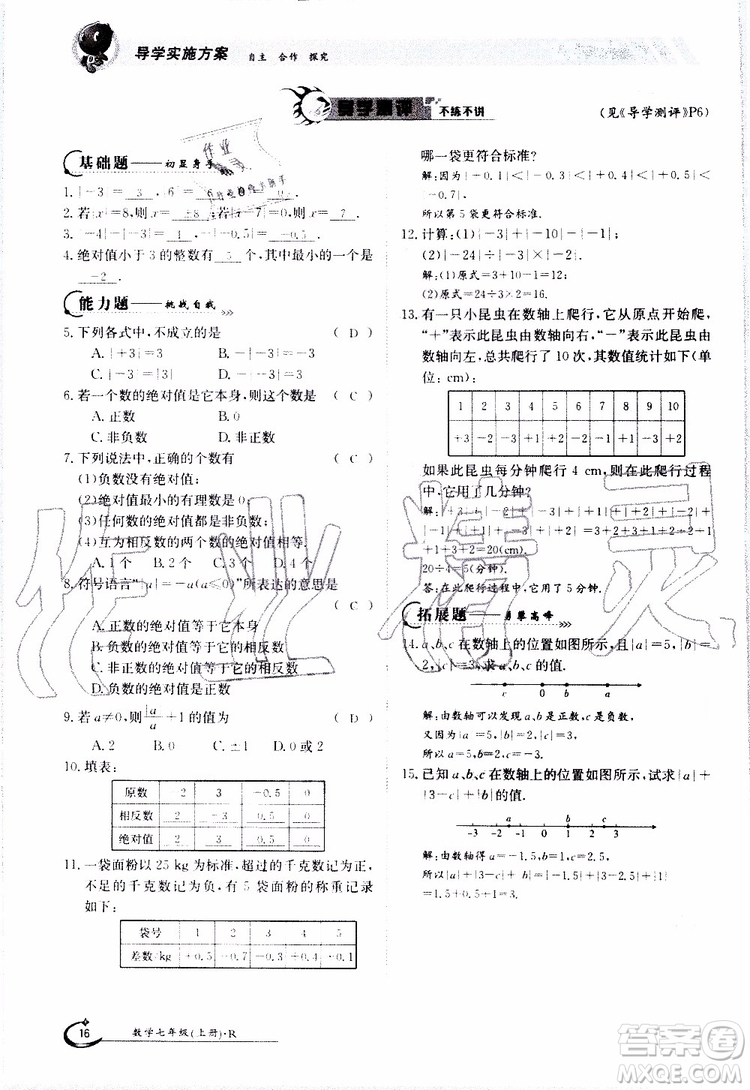 导学实施方案 自主 合作 探究
导学测评 不练不讲
(见《导学测评》P6)
基础题——初显身手
1. |-3|= 3 ,
2. 若|x|=8,则x= ±8 ;若|x-7|=0,则x= 7 .
3. -4|-3|=
4. 绝对值小于 3 的整数有 5 个,其中最小的一个是
-2 .
能力题——挑战自我
5. 下列各式中,不成立的是 ( D )
6. 若一个数的绝对值是它本身,则这个数是 ( C )
A. 正数 B. 0
C. 非负数 D. 非正数
7. 下列说法中,正确的个数有 ( C )
(1)负数没有绝对值;
(2)绝对值最小的有理数是 0;
(3)任何数的绝对值都是非负数;
(4)互为相反数的两个数绝对值相等.
A. 1 个 B. 2 个 C. 3 个 D. 4 个
8. 符号语言“|a|=-a(a≤0)”所表达的意思是
( C )
A. 正数的绝对值等于它本身
B. 负数的绝对值等于它的相反数
C. 非正数的绝对值等于它的相反数
D. 负数的绝对值是正数
9. 若a≠0,则|a|/a+1的值为 ( D )
A. 2 B. 0 C. ±1 D. 0或2
10. 填表:
原数 2 3 -0.5 0
相反数 -2 -3 0.5 0
绝对值 2 3 0.5 0
11. 一袋面粉以 25 kg 为标准,超过的千克数记为正,
不足的千克数记为负,有 5 袋面粉的称重记录
如下:
袋号 1 2 3 4 5
差数/kg +0.5 -0.6 +0.4 -0.3 -0.1
哪一袋更符合标准?
解:因为|-0.1|<|-0.3|<|+0.4|<|+0.5|<
|-0.6|,
所以第 5 袋更符合标准.
12. 计算:(1)|-3|+|-10|-|-1|;
(2)|-24|÷|-3|×|-2|.
解:(1)原式=3+10-1=12.
(2)原式=24÷3×2=16.
13. 有一只小昆虫在数轴上爬行,它从原点开始爬,
“+”表示此昆虫由数轴向右,“-”表示此昆虫由
数轴向左,总共爬行了 10 次,其数值统计如下(单
位:cm):
1 2 3 4 5 6 7 8 9 10
+3 -2 -3 +1 +2 -2 -1 +1 -3 +2
如果此昆虫每分钟爬行 4 cm,则在此爬行过程
中,它用了几分钟?
解:|+3|+|-2|+|-3|+|+1|+|+2|+|-2|+
|-1|+|+1|+|-3|+|+2|=3+2+3+1+2+2+
1+1+3+2=20(cm).
20÷4=5(分钟).
答:在此爬行过程中,它用了 5 分钟.
拓展题——勇攀高峰
14. a、b、c 在数轴上的位置如图所示,且|a|=5,|b|=
2,|c|=3,求 a、b、c 的值.
c 0 b a
解:由数轴可以发现 a、b 是正数,c 是负数.
所以 a=5,b=2,c=-3.
15. 已知 a、b、c 在数轴上的位置如图所示,试求|a|+
|3-c|+|b|的值.
a b c
-3 -2 -1 0 1 2 3
16
数学七年级(上册)·R
作业精灵